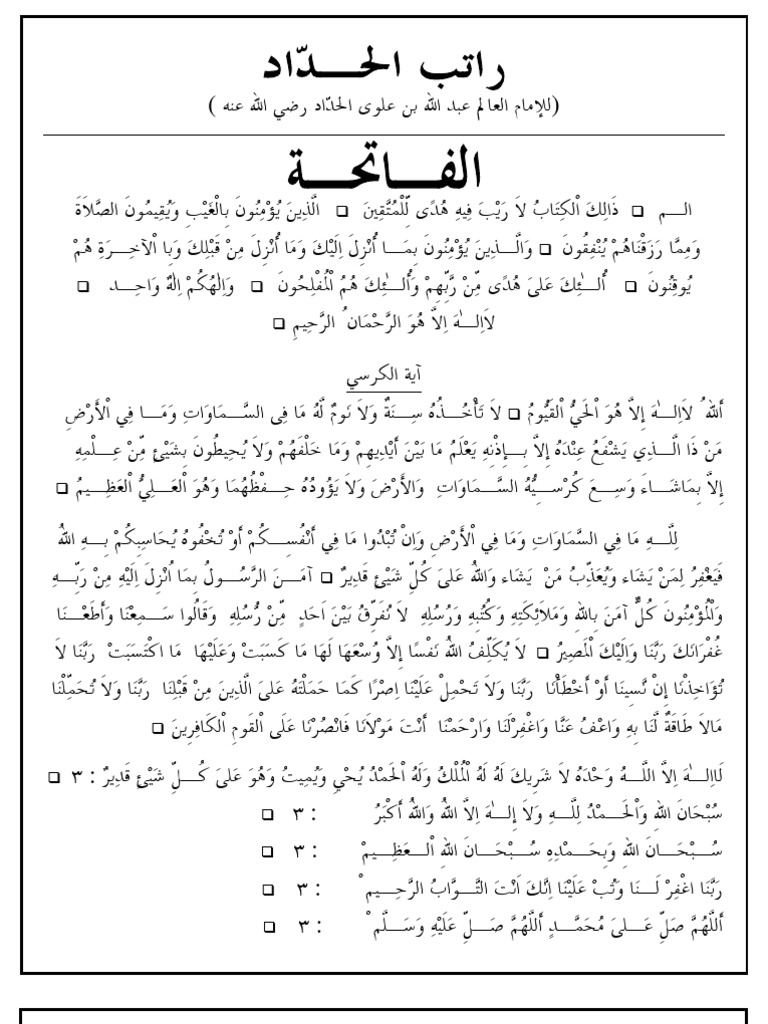 راتب الحـــدّاد
(للإمام العالم عبد الله بن علوى الحدّاد رضي الله عنه )
الفـــاتحـــة
الـــم ❑ ذَالِكَ الْكِتَابُ لَا رَيْبَ فِيهِ هُدًى لِّلْمُتَّقِينَ ❑ الَّذِينَ يُؤْمِنُونَ بِالْغَيْبِ وَيُقِيمُونَ الصَّلَاةَ
وَمِمَّا رَزَقْنَاهُمْ يُنْفِقُونَ ❑ وَالَّذِينَ يُؤْمِنُونَ بِمَا أُنْزِلَ اِلَيْكَ وَمَا أُنْزِلَ مِنْ قَبْلِكَ وَبِا الْآخِرَةِ هُمْ
يُوقِنُونَ ❑ أُلـٰئِكَ عَلىَ هُدًى مِّنْ رَبِّهِمْ وَأُلـٰئِكَ هُمُ الْمُفْلِحُونَ ❑ وَاِلٰهُكُمْ اِلٰهٌ وَاحِـــد ❑
لَااِلـٰهَ اِلاَّ هُوَ الرَّحْمَانُ الرَّحِيمِ ❑
آية الكرسي
أَللهُ لَااِلـٰهَ إِلاَّ هُوَ الْحَيُّ الْقَيُّومُ ❑ لَا تَأْخُـــذُهُ سِـــنَةٌ وَلَا نَومٌ لَّهُ مَا فِى السَّـــمَاوَاتِ وَمَـــا فِي الْأَرْضِ
مَنْ ذَا الَّـــذِي يَشْفَعُ عِنْدَهُ إِلاَّ بِـــإِذْنِهِ يَعْلَمُ مَا بَيْنَ أَيْدِيهِمْ وَمَا خَلْفَهُمْ وَلَا يُحِيطُونَ بِشَيْئٍ مِّنْ عِـــلْمِهِ
إِلاَّ بِمَاشَـــاءَ وَسِـــعَ كُرْسِـــيُّهُ السَّـــمَاوَاتِ وَالأَرْضَ وَلَا يَؤُودُهُ حِـــفْظُهُمَا وَهُوَ الْعَـــلِيُّ الْعَظِـــيمُ ❑
لِلَّـــهِ مَا فِي السَّمَاوَاتِ وَمَا فِي الْأَرْضِ وَاِنْ تُبْدُوا مَا فِي أَنْفُسِـــكُمْ أَوْ تُخْفُوهُ يُحَاسِبكُمْ بِـــهِ اللهُ
فَيَغْفِرُ لِمَنْ يَشَاء وَيُعَذِّبُ مَنْ يَشَاء وَاللهُ عَلىَ كُلِّ شَيْئٍ قَدِيرٌ ❑ آمَـــنَ الرَّسُـــولُ بِمَا اُنْزِلَ اِلَيْهِ مِنْ رَبِّـــهِ
وَالْمُؤْمِنُونَ كُلٌّ آمَنَ بِاللهِ وَمَلَائِكَتِهِ وَكُتُبِهِ وَرُسُلِهِ لَا نُفَرِّقُ بَيْنَ اَحَدٍ مِّنْ رُّسُلِهِ وَقَالُوا سَـــمِعْنَا وَأَطَعْـــنَا
غُفْرَانَكَ رَبَّنَا وَاِلَيْكَ الْمَصِيرُ ❑ لَا يُكَلِّفُ اللهُ نَفْسًا إِلاَّ وُسْعَهَا لَهَا مَا كَسَبَتْ وَعَلَيْهَا مَا اكْتَسَبَتْ رَبَّنَا لَا
تُؤَاخِذْنَا إِنْ نَّسِينَا أَوْ أَخْطَأْنَا رَبَّنَا وَلَا تَحْمِلْ عَلَيْنَا اِصْرًا كَمَا حَمَلْتَهُ عَلىَ الَّذِينَ مِنْ قَبْلِنَا رَبَّنَا وَلَا تُحَمِّلْنَا
مَالَا طَاقَةَ لَنَا بِهِ وَاعْفُ عَنَّا وَاغْفِرْلَنَا وَارْحَمْنَا أَنْتَ مَوْلَانَا فَانْصُرْنَا عَلَى الْقَومِ الْكَافِرِينَ ❑
لَااِلـٰهَ اِلاَّ اللَّـــهُ وَحْدَهُ لَا شَرِيكَ لَهُ لَهُ الْمُلْكُ وَلَهُ الْحَمْدُ يُحْيِ وَيُمِيتُ وَهُوَ عَلىَ كُـــلِّ شَيْئٍ قَدِيرٌ : ٣ ❑
سُبْحَانَ اللهِ وَالْحَمْدُ لِلَّـــهِ وَلَا إِلـٰهَ اِلاَّ اللهُ وَاللهُ أَكْبَرُ : ٣ ❑
سُـــبْحَـــانَ اللهِ وَبِحَمْـــدِهِ سُـــبْحَـــانَ اللهِ الْعَظِـــيمْ : ٣ ❑
رَبَّنَا اغْفِرْ لَـــنَا وَتُبْ عَلَيْنَا اِنَّكَ اَنْتَ التَّـــوَّابُ الرَّحِـــيمْ : ٣ ❑
أَللَّهُمَّ صَلِّ عَـــلىَ مُحَمَّـــدٍ أَللَّهُمَّ صَـــلِّ عَلَيْهِ وَسَـــلَّمْ : ٣ ❑